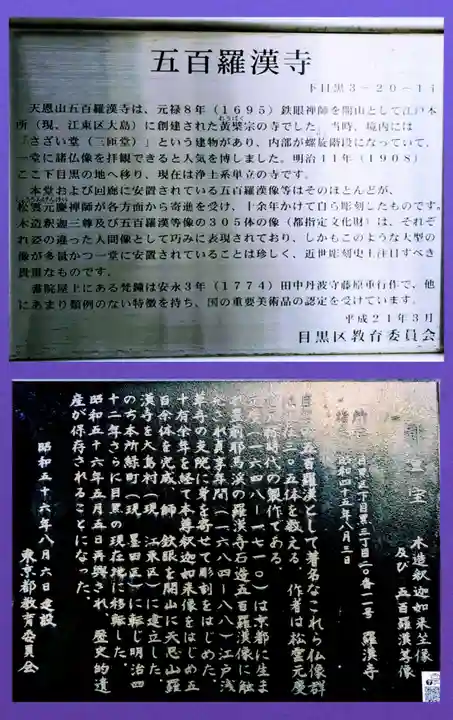 五百羅漢寺
下目黒3-20-11
天恩山五百羅漢寺は、元禄8年(1695)鉄眼禅師を開山として江戸本
所(現、江東区大島)に創建された黄檗宗の寺でした。当時、境内には
『さざい堂(三匝堂)』という建物があり、内部が螺旋階段になっていて、
一堂に諸仏像を拝観できると人気を博しました。明治11年(1908)
ここ下目黒の地へ移り、現在は浄土系単立の寺です。
本堂および回廊に安置されている五百羅漢像等はそのほとんどが、
松雲元慶禅師が各方面から寄進を受け、十余年かけて自ら彫刻したものです。
木造釈迦三尊及び五百羅漢等像の305体の像(都指定文化財)は、それぞ
れ姿の違った人間像として巧みに表現されており、しかもこのような大型の
像が多量かつ一堂に安置されていることは珍しく、近世彫刻史上注目すべき
貴重なものです。
書院屋上にある梵鐘は安永3年(1774)田中丹波守藤原重行作で、他
にあまり類例のない特徴を持ち、国の重要美術品の認定を受けています。
平成21年3月
目黒区教育委員会
木造釈迦如来坐像
及び 五百羅漢等像
目黒区下目黒三丁目二〇番一一号 羅漢寺
昭和四十五年八月三日
五百羅漢として著名なこれら仏像群
は現在三〇五体を数える。作者は松雲元慶
時代の製作である。
(一六四八―一七一〇)は京都に生ま
れ豊前耶馬渓の羅漢寺石造五百羅漢像に触
発され貞享年間(一六八四―八八)江戸浅
草寺の支院に身を寄せて彫刻をはじめた。
十有余年を経て本尊釈迦如来像をはじめ五
百余体を完成、師鉄眼を開山に天恩山羅
漢寺を大島村(現 江東区)に建立した。
のち本所緑町(現 墨田区)に転じ明治四
十二年さらに目黒の現在地に移転した。
昭和五十六年五月五日再興され、歴史的遺
産が保存されることになった。
昭和五十六年八月六日 建設
東京都教育委員会